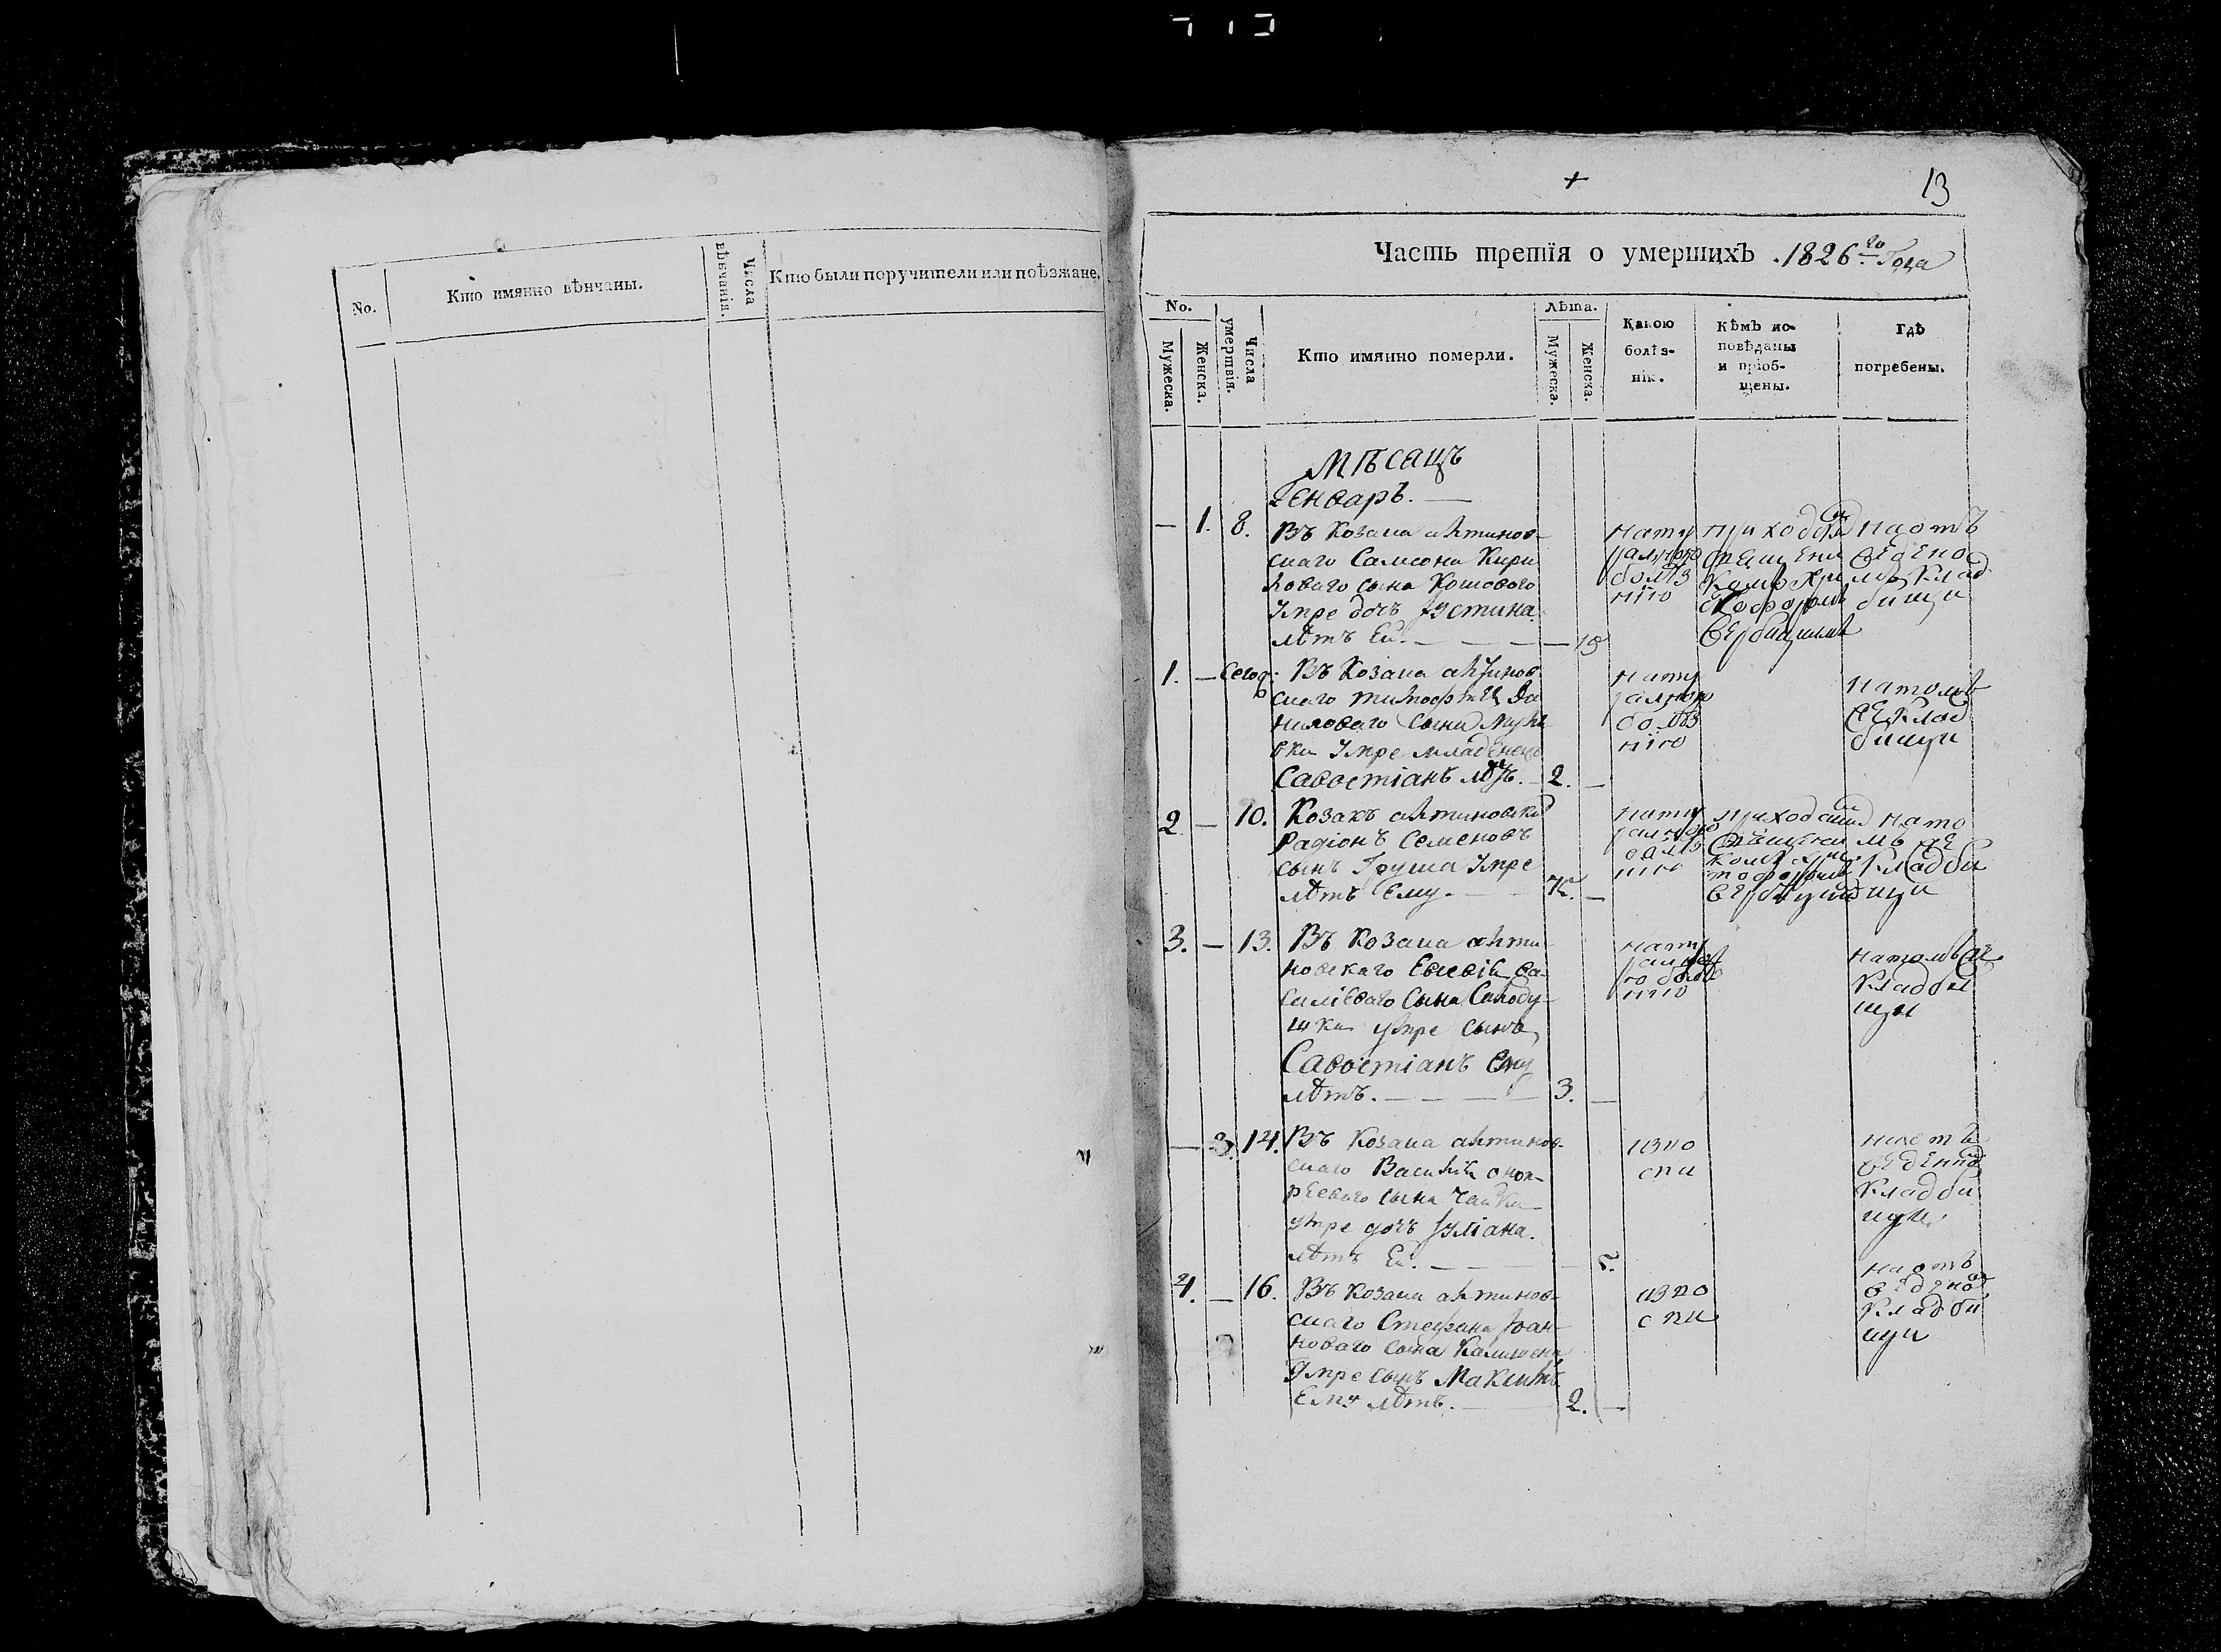 No.
Кто имянно вѣнчаны.
Числа вѣнчанія.
Кто были поручители или поѣзжане.
13
Часть третія о умершихъ 1826го Года
No.
Мужеска.
Женска.
Числа умертвія.
Кто имянно померли.
Лѣта.
Мужеска.
Женска.
Какою
болѣз-
нію.
Кѣмъ ис-
повѣданы
и пріоб-
щены.
Гдѣ
погребены.
Мѣсацъ
Генваръ.
— 1. 8. Въ Козака
скаго Самсона Кири
ловаго сына Кошового
Умре дочъ Іустина
лѣтъ Ей. — — — 13
нату
ралною
болѣз
нію
приходским
Священи
ком Хри
стофором
Вербицким
на отъ
ведено
кладъ
бищи
1. — Въ Козака
скаго Тимофѣя Да
ниловаго Сына
Умре младенецъ
Савостіанъ лѣтъ. — 2. —
нату
ралною
болѣз
нію
на томъ
же клад
бищи
2 — 10. Козакъ
Радіонъ Семеновъ
сынъ Груша Умре
лѣтъ Ему. —
нату
ралною
болѣз
нію
приходским
Священи
ком Хри
стофором
Вербицким
на то
мъ же
кладби
щи
3. — 13. Въ Козака
новскаго Евсевія Ва
силіеваго Сына
шки умре сынъ
Савостіанъ Ему
лѣтъ. — — — 3. —
нату
ралною
болѣз
нію
на томъ же
кладби
щи
— 3. 14. Въ Козака
скаго Василія Оноп-
рееваго сына Чайки
умре дочъ Іуліана.
лѣтъ Ей. — — 5.
изпо
спи
на отъ
веденном
кладби
щи.
4. — 16. Въ Козака
скаго Стефана Іоан-
новаго сына
Умре сынъ Максимъ
Ему лѣтъ. — 2. —
изпо
спи
на отъ
веденом
кладби
щи